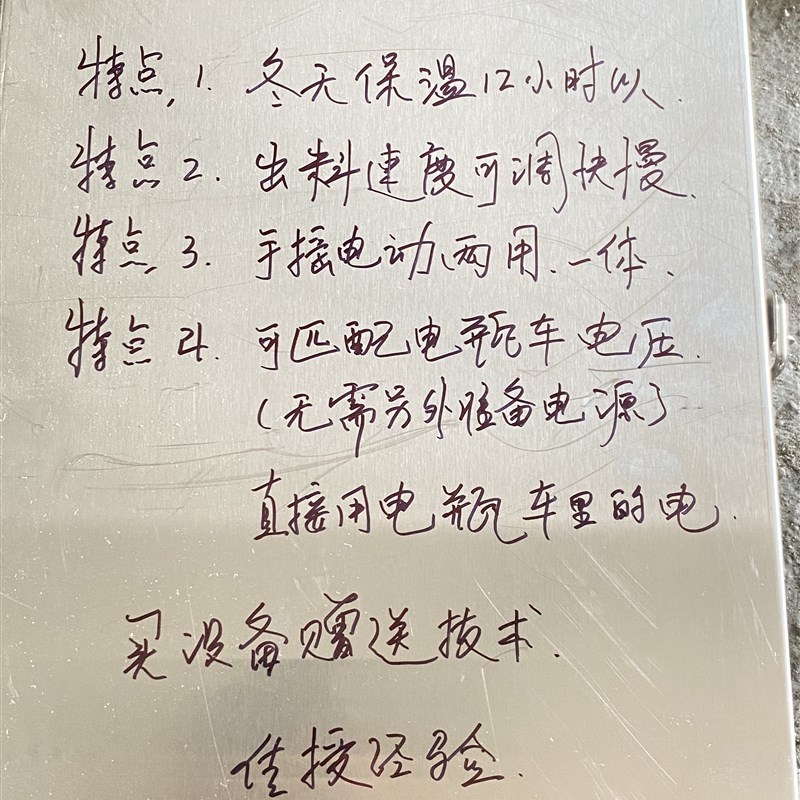 特点,1. 冬天保温12小时以.
特点2. 出料速度可调快慢.
特点,3. 手摇电动两用、一体.
特点4. 可匹配电瓶车电压.
(无需另外准备电源)
直接用电瓶车里的电.
买设备赠送技术.
传授经验.